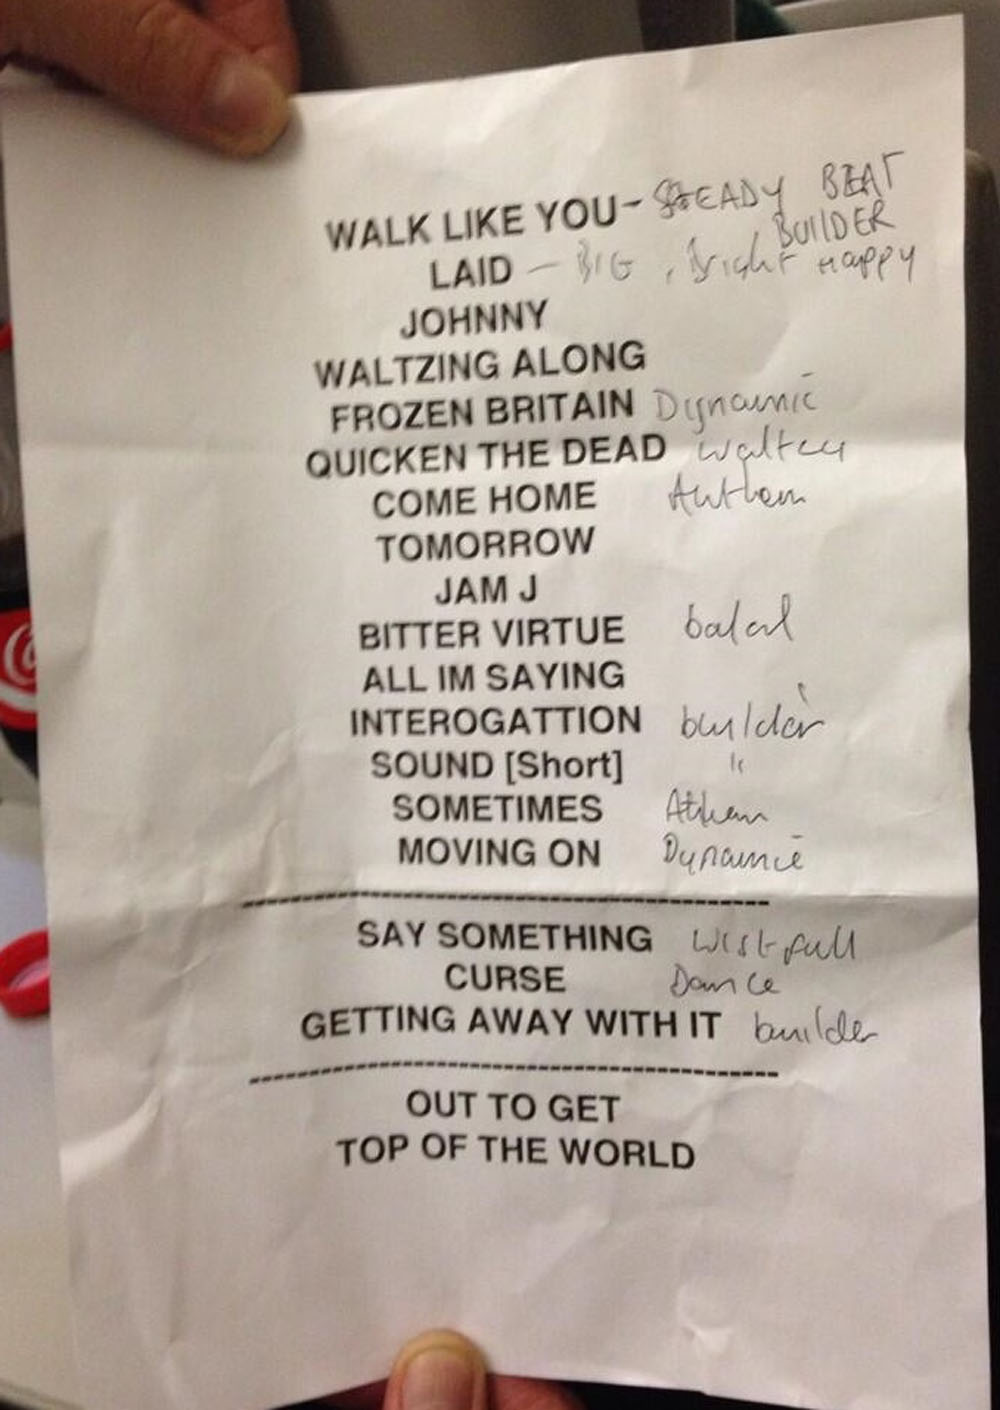 WALK LIKE YOU - STEADY BEAT
BUILDER
LAID - BIG, Bright Happy
JOHNNY
WALTZING ALONG
FROZEN BRITAIN Dynamic
QUICKEN THE DEAD
COME HOME Anthem
TOMORROW
JAM J
BITTER VIRTUE
ALL IM SAYING
INTEROGATTION builder
SOUND [Short] "
SOMETIMES
MOVING ON Dynamic
SAY SOMETHING Wistfull
CURSE Dance
GETTING AWAY WITH IT builder
OUT TO GET
TOP OF THE WORLD